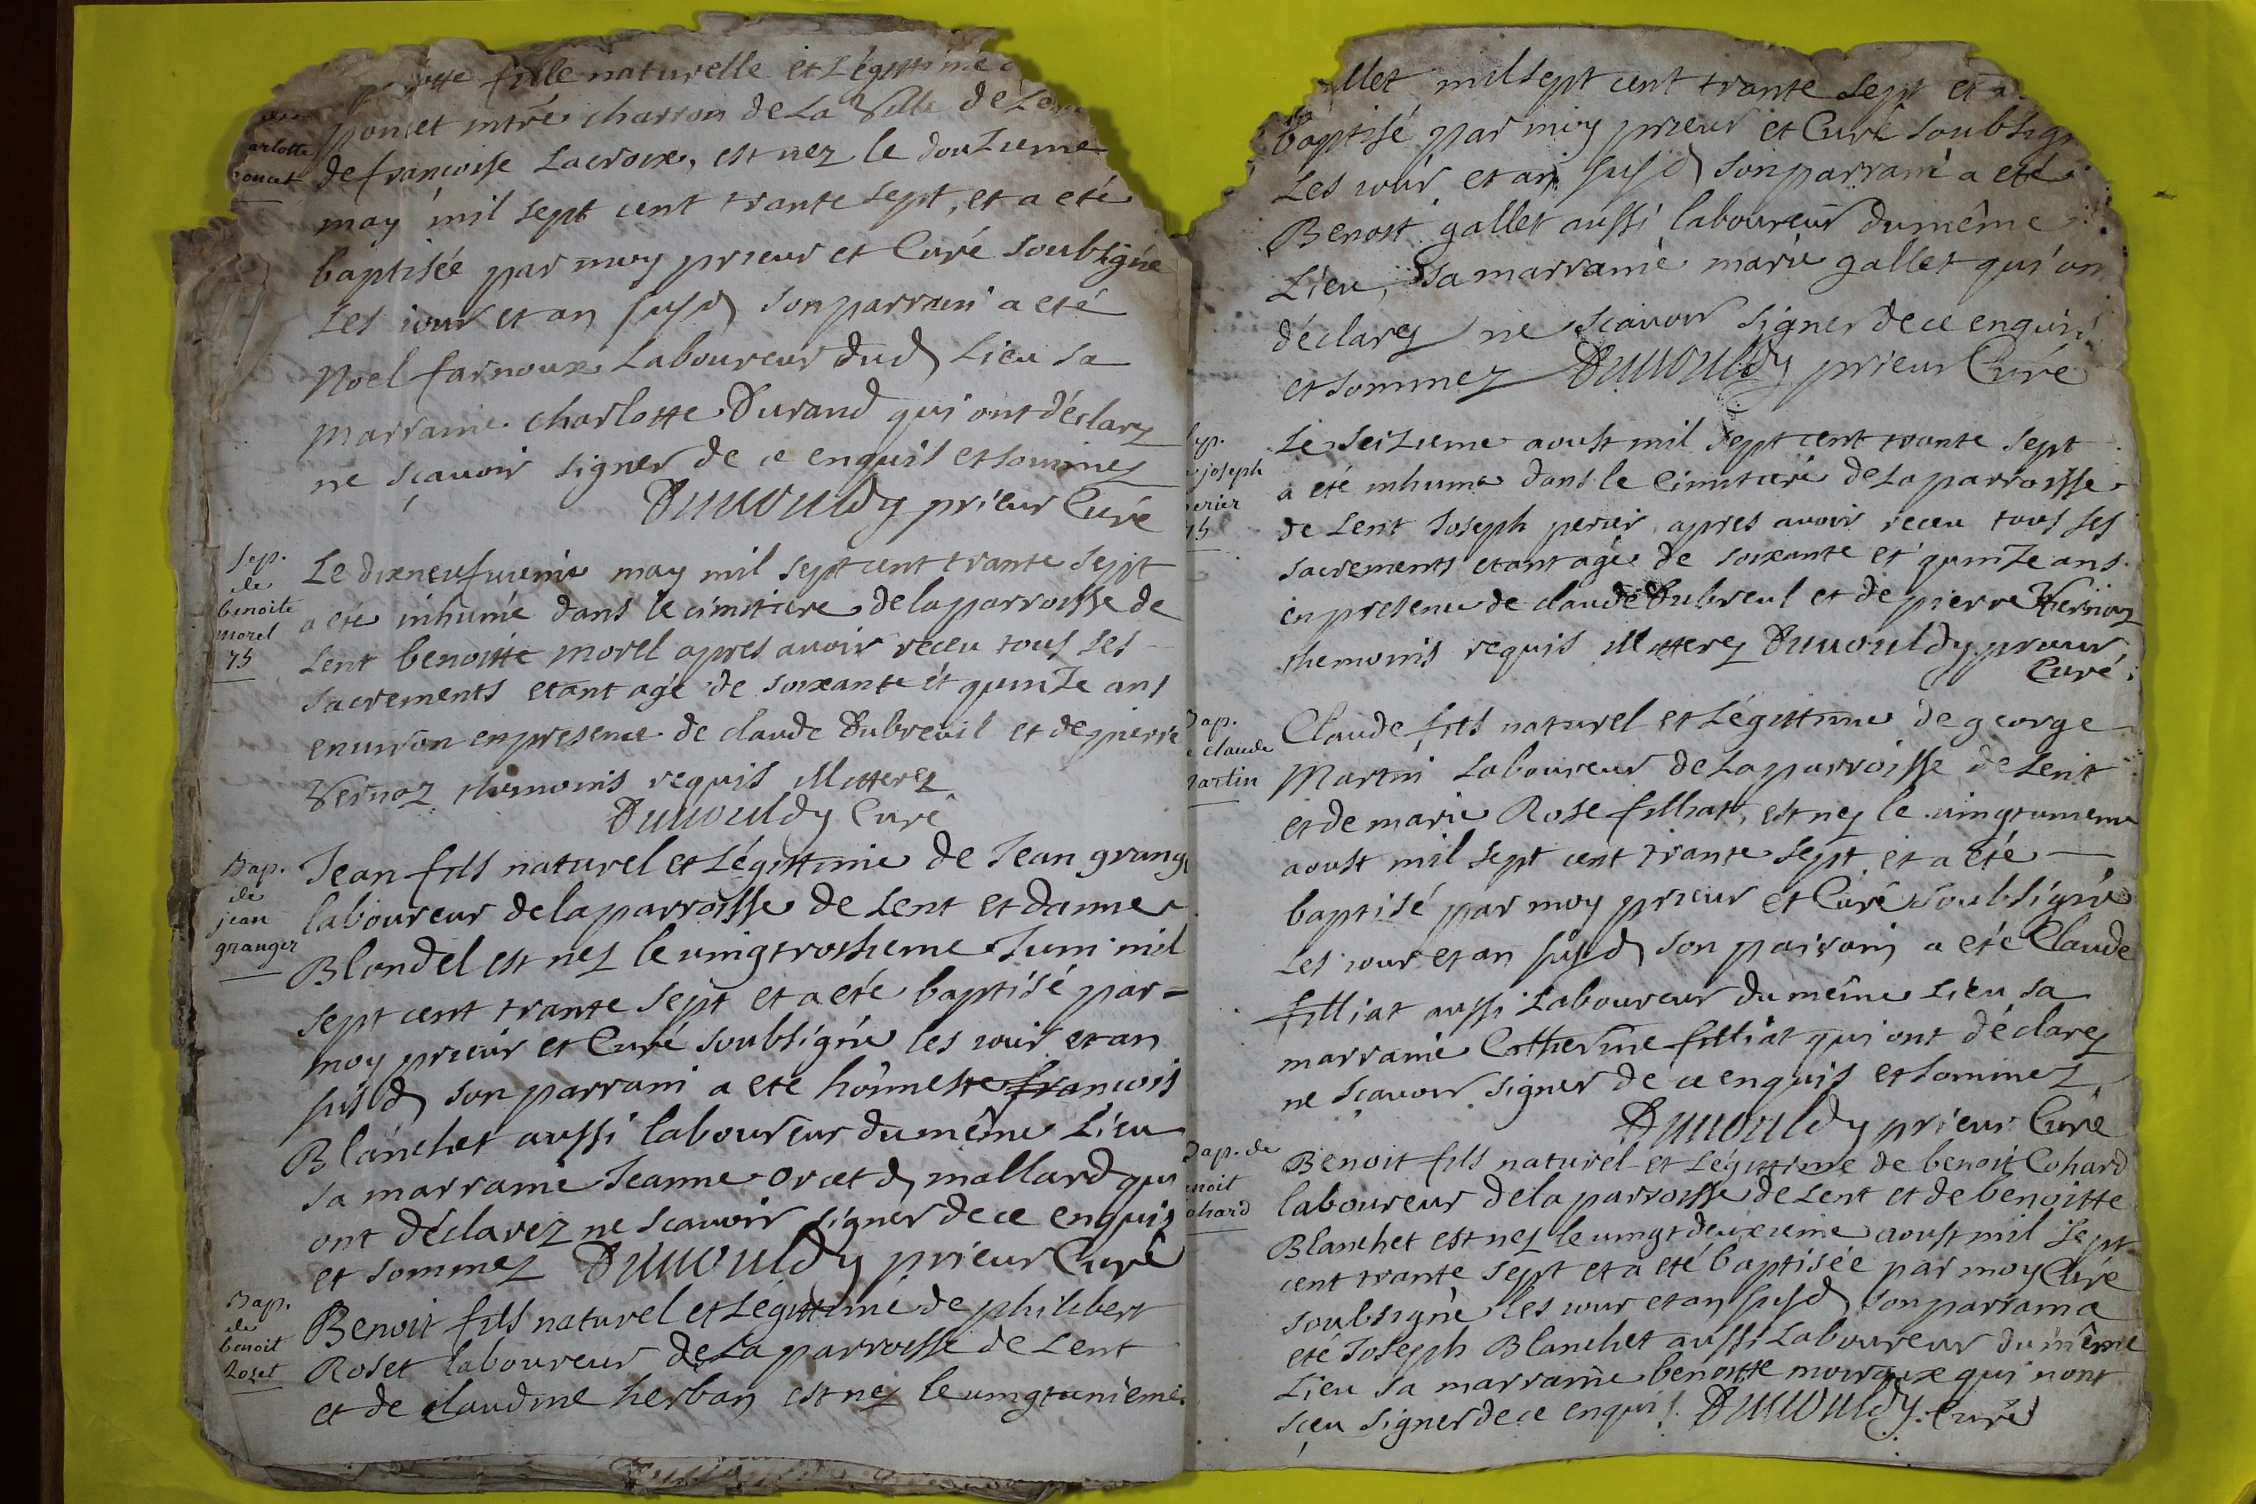 fille naturelle et Légittime
poncet mtrè charron de La Ville de
de francoise Lacroix, est nez le douzieme
may mil sept cent trante sept, et a eté
baptisée par moy prieur et Curé soubsigné
Les iour et an susd son parrain a eté
Noel farnoux Laboureur dud Lieu sa
Marraine charlotte Durand qui ont déclarez
ne scavoir signer de ce enquis et sommez
Duvouldy prieur Curé
Sep.
de
benoite
morel
75
Le dixneufuieme may mil sept cent trante sept
a eté inhumé dans le cimitiere de la parroisse de
Lent benoitte morel apres avoir receu tous ses
sacrements etant agé de soixante et quinze ans
enuiron en presence de claude Dubreuil et de pierre
Vernoz themoins requis Illitterez
Duvouldy Curé
Bap.
de
jean
granger
Jean fils naturel et Légittime de Jean grange
laboureur de la parroisse de Lent et danne
Blondel est nez le uingtroisieme Juin mil
sept cent trante sept et a eté baptisé par
moy prieur et Curé soubsigné les iour et an
susd son parrain a eté honneste francois
Blanchet aussi laboureur du même Lieu
sa marraine Jeanne mallard qui
ont déclarez ne scavoir signer de ce enquis
et sommez Duvouldy prieur Curé
Bap.
de
benoit
Roset
Benoit fils naturel et Légittime de philibert
Roset laboureur de La parroisse de Lent
et de claudine herban est nez le uingtunieme
llet mil sept cent trante sept et a
baptisé par moy prieur et Curé soubsign
Les iour et an susd son parrain a eté
Benoit gallet aussi laboureur du même
Lieu, sa marraine marie gallet qui on
déclarez ne scavoir signer de ce enquis
et sommez Duvouldy prieur Curé
joseph
erier
75
Le seizieme aoust mil sept cent trante sept
a eté inhumé dans le Cimitiere de La parroisse
de Lent Joseph perier apres avoir receu tous ses
sacrements etant agé de soixante et quinze ans
en presence de claude Dubreul et de pierre Vernoz
themoins requis Illitterez Duvouldy prieur
Curé
Bap.
claude
artin
Claude fils naturel et Légittime de george
Martin Laboureur de La parroisse de Lent
et de marie Rose filliat, est nez le uingtunieme
aoust mil sept cent trante sept et a eté
baptisé par moy prieur et Curé soubsigné
Les iour et an susd son parrain a eté Claude
filliat aussi Laboureur du même Lieu sa
marraine Catherine filliat qui ont déclarez
ne scavoir signer de ce enquis et sommez
Duvouldy prieur Curé
Bap. de
enoit
ohard
Benoit fils naturel et Légittime de benoit Cohard
laboureur de la parroisse de Lent et de benoitte
Blanchet est nez le uingtdeuxieme aoust mil sept
cent trante sept et a eté baptisée par moy Curé
soubsigné les iour et an susd son parrain a
eté Joseph Blanchet aussi Laboureur du même
Lieu sa marraine benoitte qui nont
sceu signer de ce enquis Duvouldy Curé